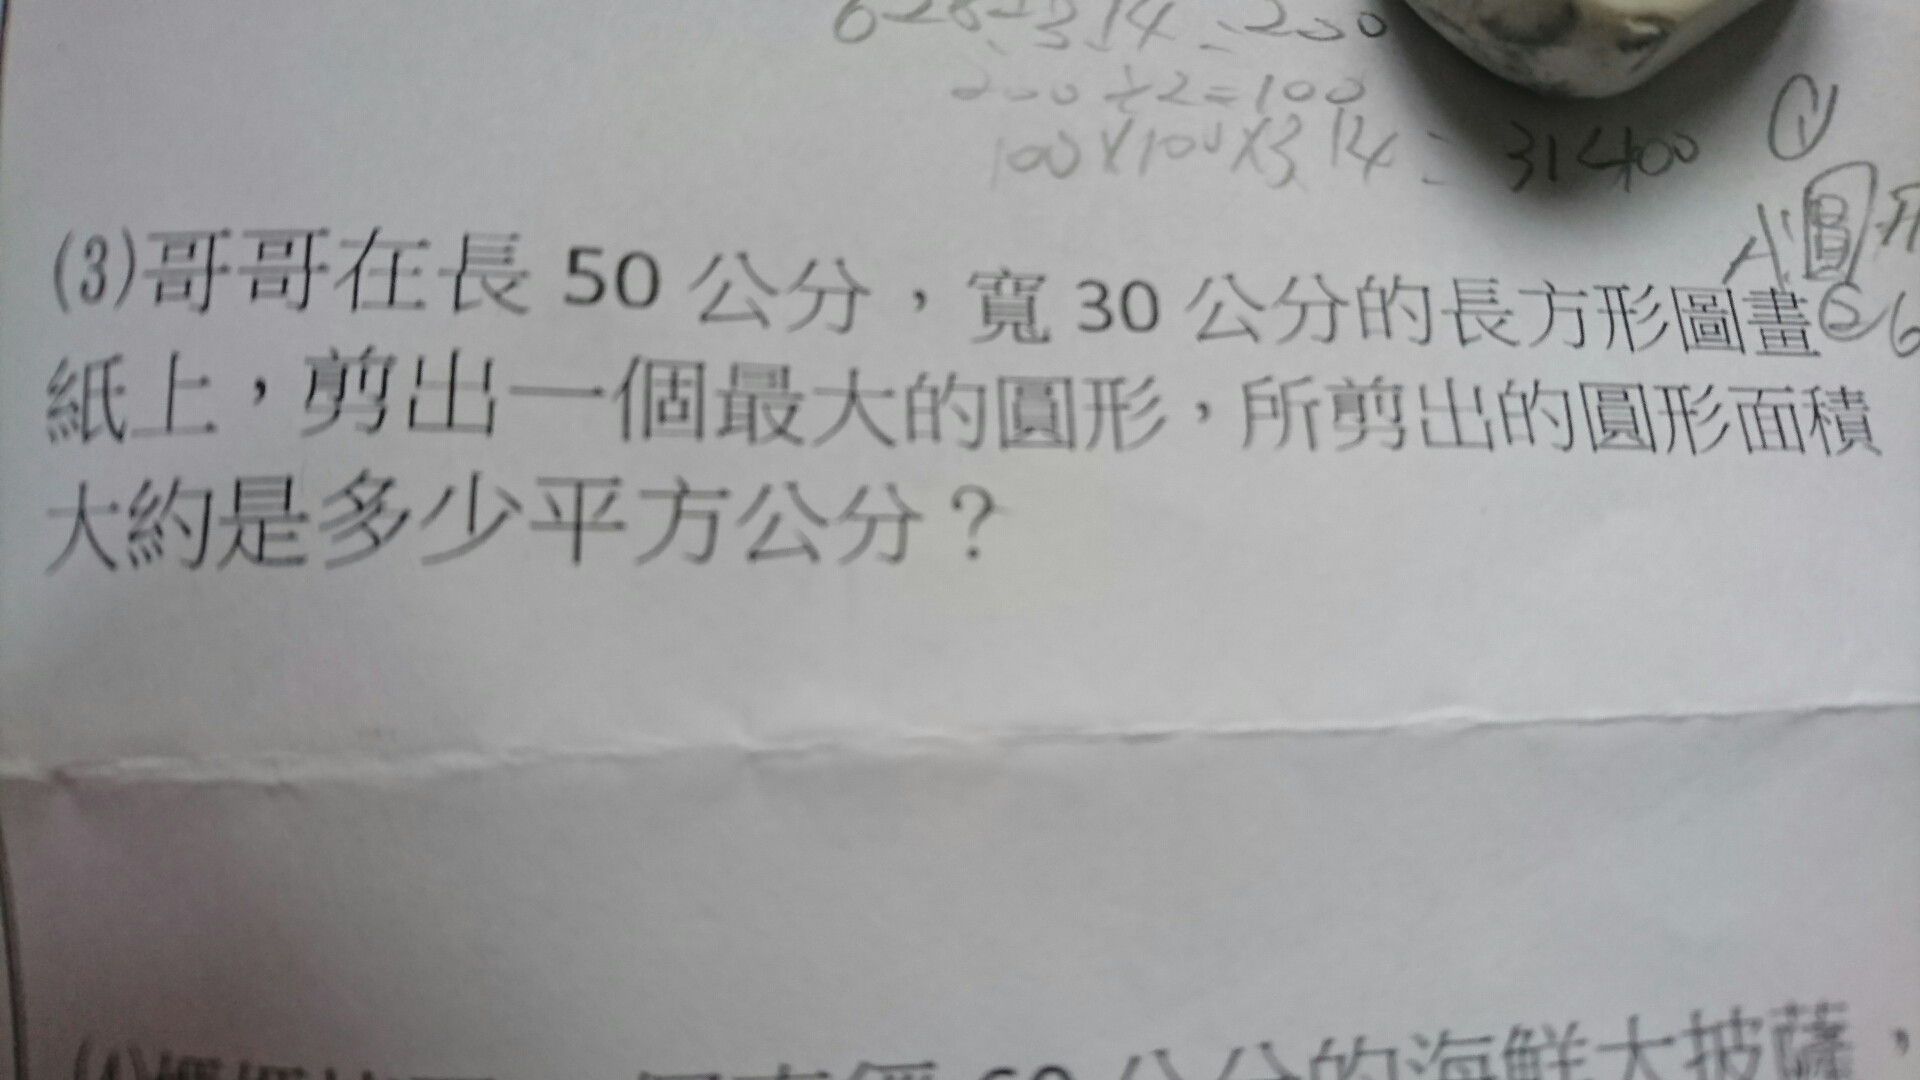 628÷3.14=200
200÷2=100
100×100×3.14=31400
(3)哥哥在長 50 公分，寬 30 公分的長方形圖畫
紙上，剪出一個最大的圓形，所剪出的圓形面積
大約是多少平方公分？
60 公分的海鮮大披薩，